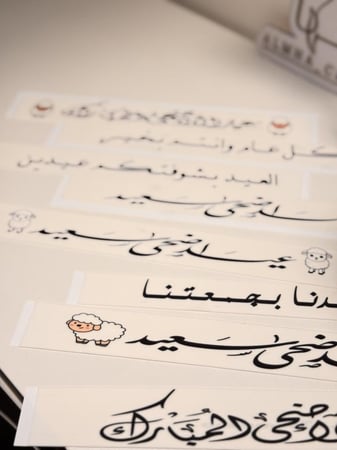 كل عام وانتم بخير
العيد بشوفتكم عيدين
سعيد
عيد أضحى سعيد
دنا بجمعتنا
أضحى سعيد
لأضحى المُبَارك